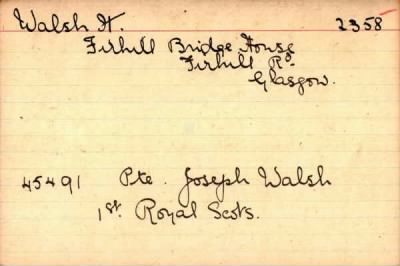 Walsh H. 2358
Firhill Bridge House
Firhill Rd.
Glasgow.
45491 Pte. Joseph Walsh
1st. Royal Scots.